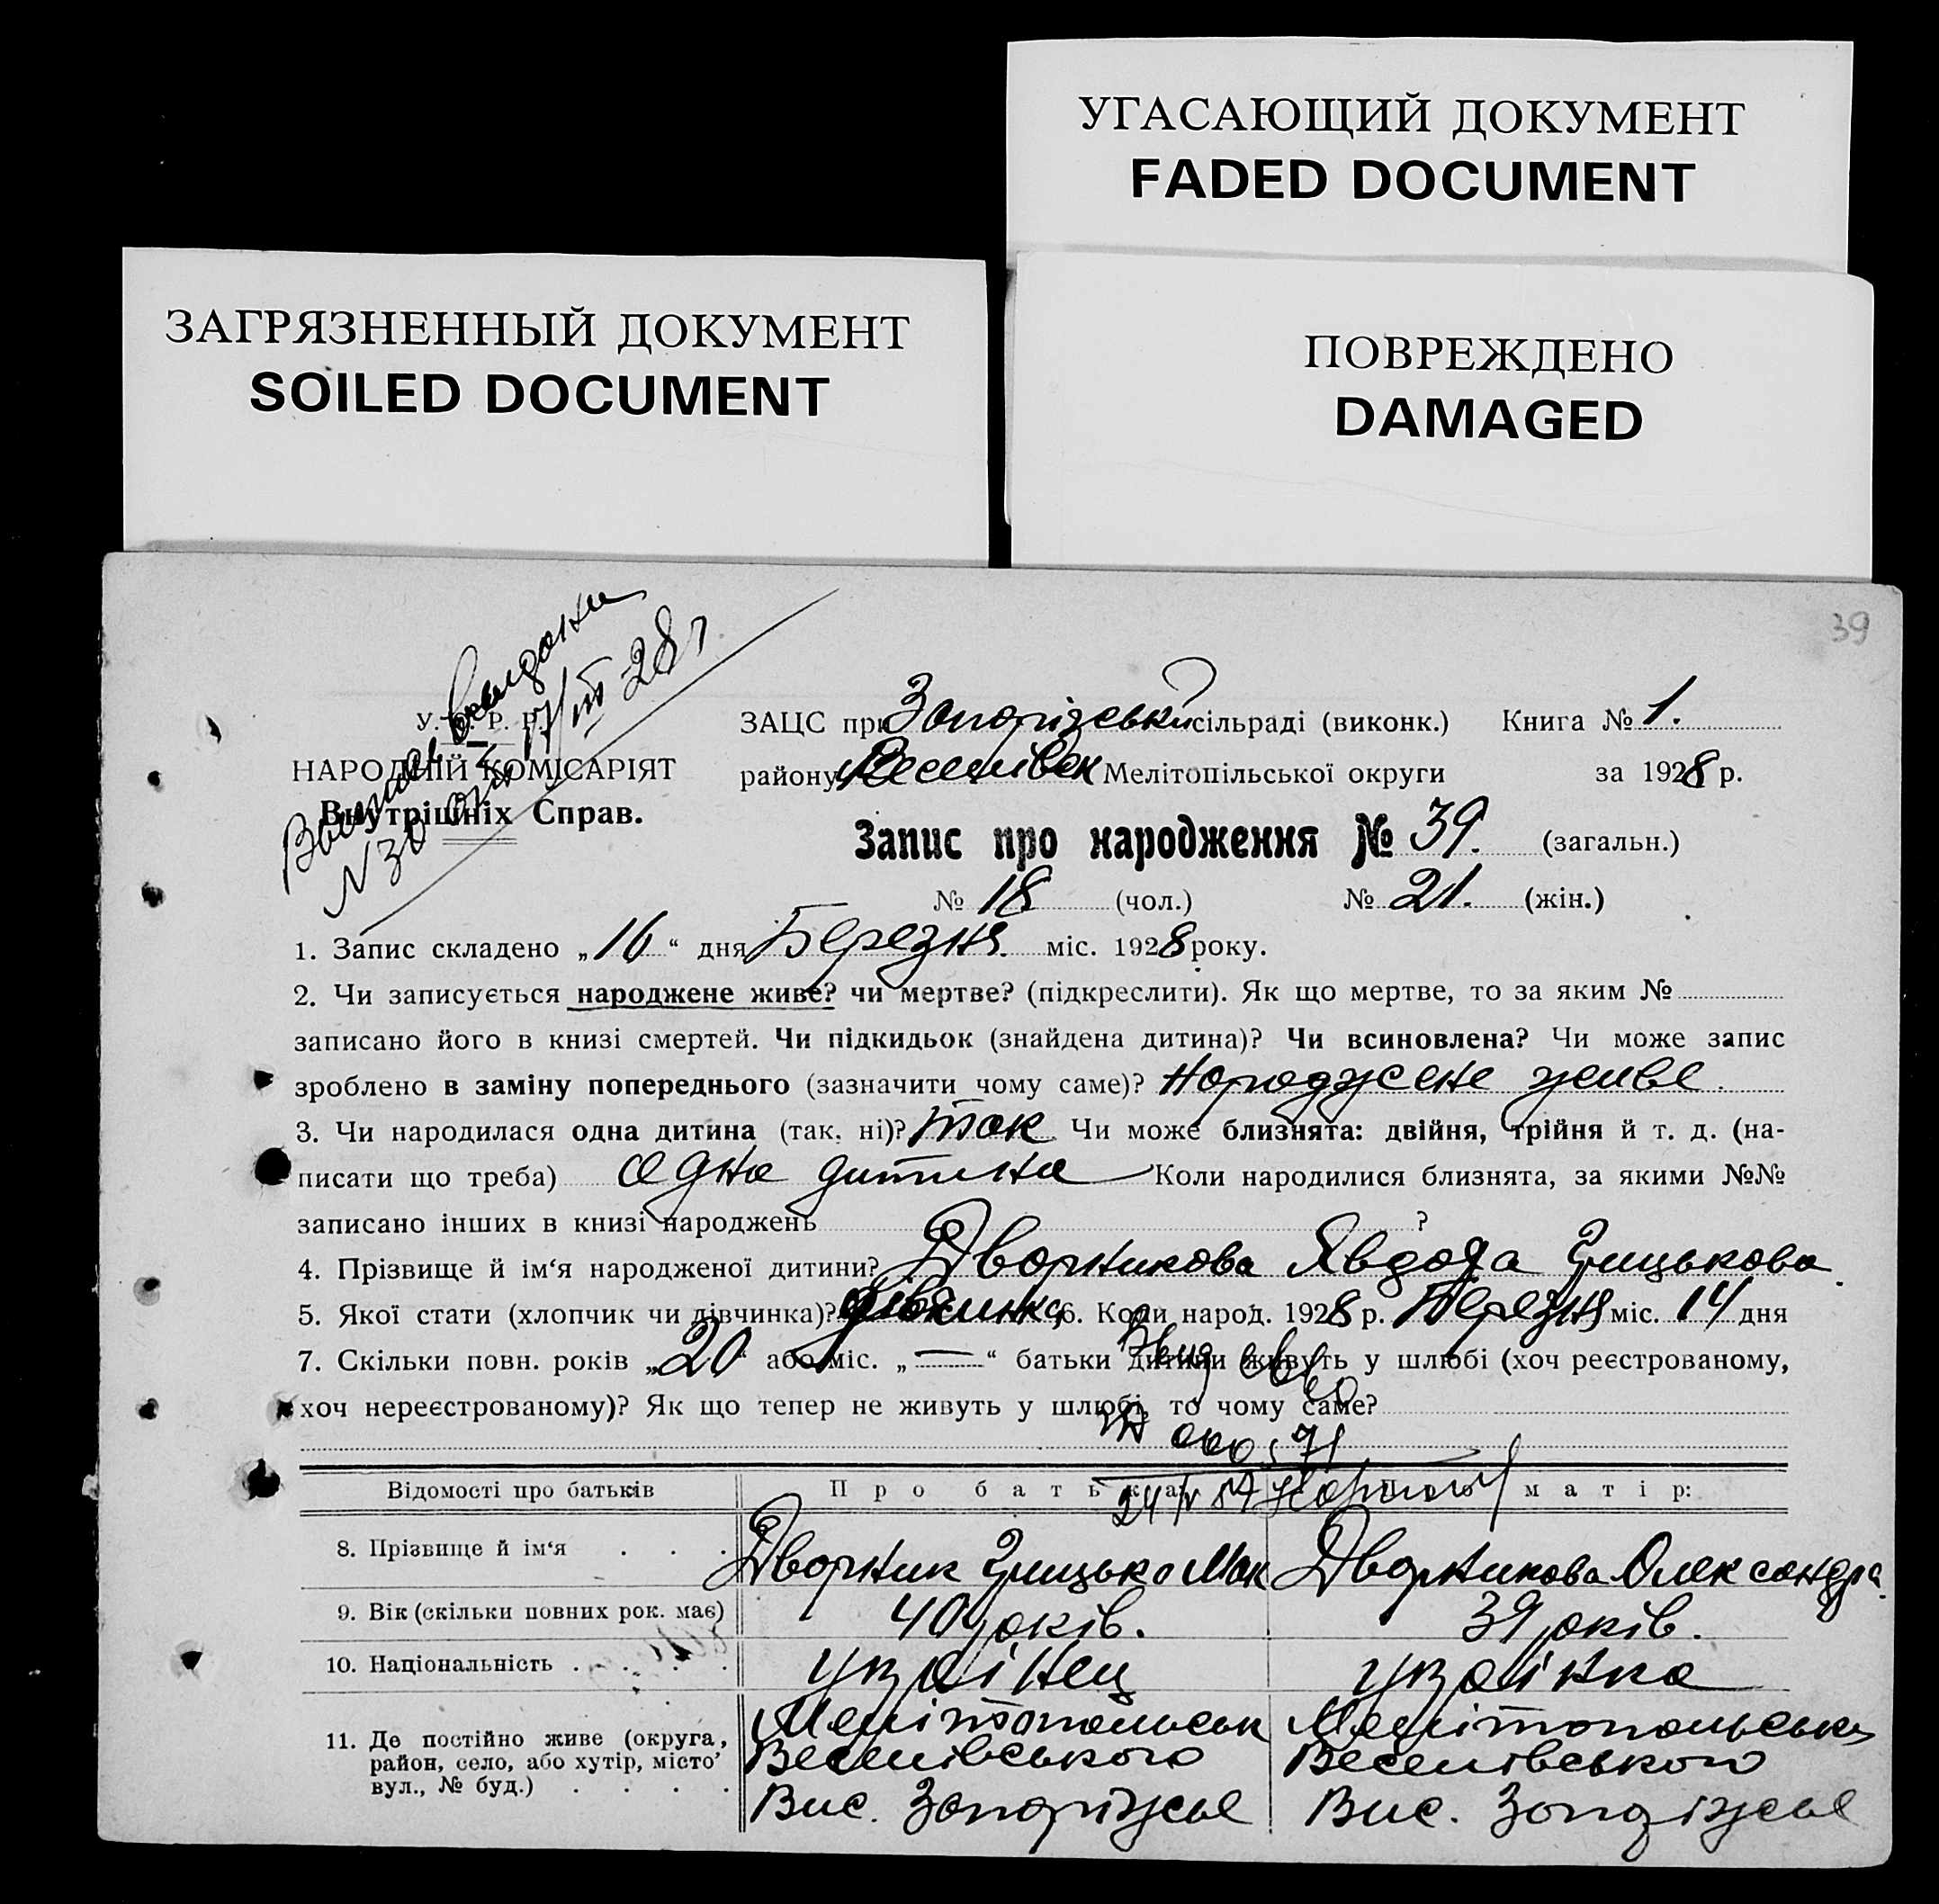 УГАСАЮЩИЙ ДОКУМЕНТ
FADED DOCUMENT
ЗАГРЯЗНЕННЫЙ ДОКУМЕНТ
SOILED DOCUMENT
ПОВРЕЖДЕНО
DAMAGED
39
17/III 28 г
N 30
У. С. Р. Р.
НАРОДНІЙ КОМІСАРІЯТ
Внутрішніх Справ.
ЗАЦС при Запорізський сільраді (виконк.) Книга № 1.
району Веселівськ Мелітопільської округи за 1928 р.
Запис про народження № 39. (загальн.)
№ 18 (чол.) № 21. (жін.)
1. Запис складено „16“ дня Березня міс. 1928 року.
2. Чи записується народжене живе? чи мертве? (підкреслити). Як що мертве, то за яким №
записано його в книзі смертей. Чи підкидьок (знайдена дитина)? Чи всиновлена? Чи може запис
зроблено в заміну попереднього (зазначити чому саме)? Народжене живе.
3. Чи народилася одна дитина (так, ні)? так Чи може близнята: двійня, трійня й т. д. (на-
писати що треба) одна дитина Коли народилися близнята, за якими №№
записано інших в книзі народжень ?
4. Прізвище й ім‘я народженої дитини? Дворникова Явдоха Грицькова
5. Якої стати (хлопчик чи дівчинка)? дівчинка 6. Коли народ. 1928 р. Березня міс. 14 дня
7. Скільки повн. років „20“ або міс. „—“ батьки дитини живуть у шлюбі (хоч реєстрованому,
хоч нереєстрованому)? Як що тепер не живуть у шлюбі, то чому саме?
Відомості про батьків Про батька: Про матір:
8. Прізвище й ім‘я . . . Дворник Грицько Мак Дворникова Олександра
9. Вік (скільки повних рок. має) 40 років. 39 років.
10. Національність . . . . . українец українка
11. Де постійно живе (округа, Мелітопольськ Мелітопольськ
район, село, або хутір, місто Веселівського Веселівського
вул., № буд.) . . . . Вис. Запоріжжя Вис. Запоріжжя